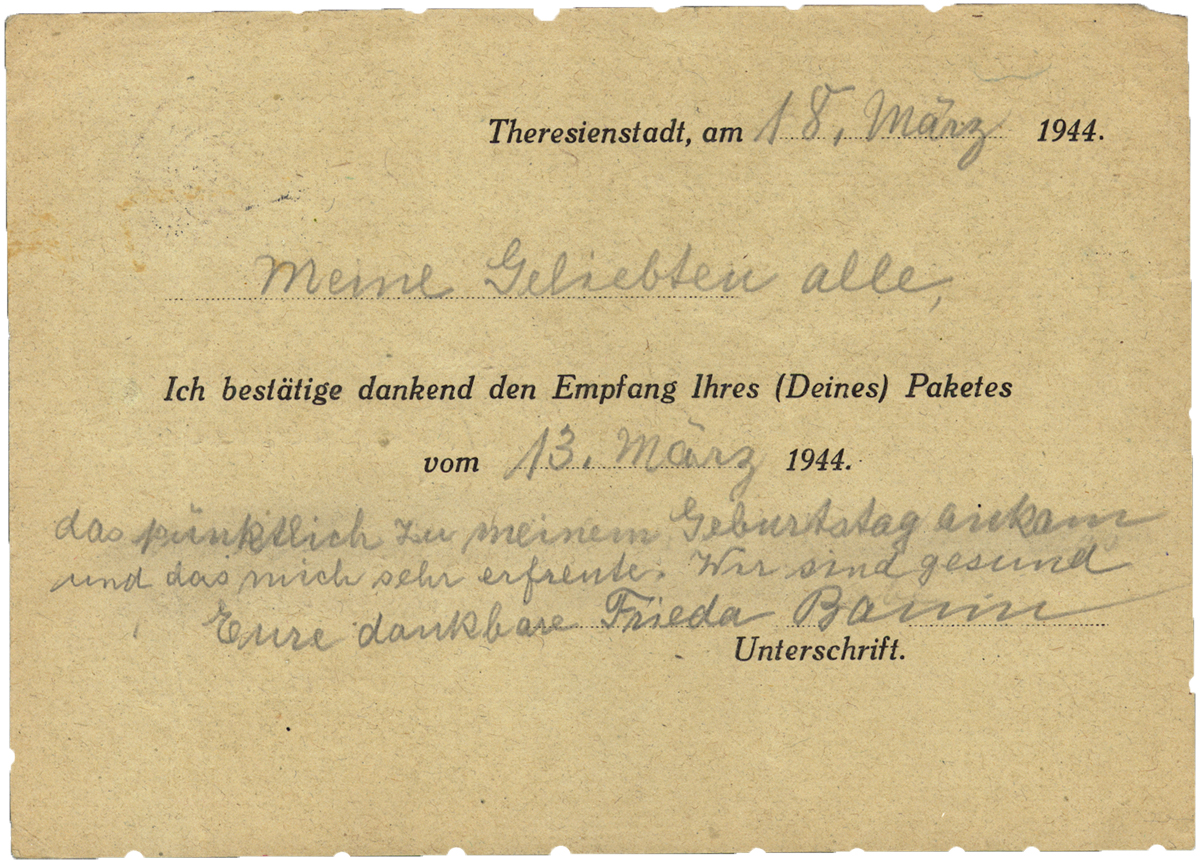 Theresienstadt, am 18. März 1944.
Meine Geliebten alle,
Ich bestätige dankend den Empfang Ihres (Deines) Paketes
vom 13. März 1944.
das pünktlich zu meinem Geburtstag ankam
und das mich sehr erfreute. Wir sind gesund
Eure dankbare Frieda
Unterschrift.